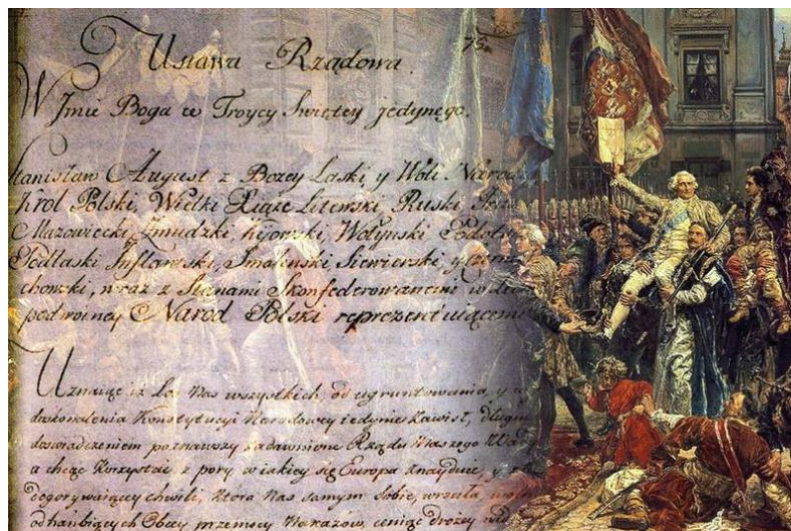 Ustawa Rządowa.
W Jmie Boga w Troycy Swiętey jedynego.
Stanisław August z Bozey Łaski y Woli Narodu
Krol Polski, Wielki Xiąze Litewski Ruski
Mazowiecki, Zmudzki, Kijowski, Wołynski Podolski
Podlaski Inflantski, Smolenski Siewierski y Czerni
chowski, wraz z Stanami Skonfederowanemi w
podwoiney Narod Polski reprezentuiącemi
Uznaiąc iz Los Nas wszystkich, od ugruntowania, y
doskonalenia Konstytucyi Narodowey iedynie zawisł, długim
doswiadczeniem poznawszy zadawnione Rządu Naszego Wady
a chcąc korzystać z pory w iakiey się Europa znayduie, y z
dogorywaiącey chwili, ktora Nas samym Sobie, wrociła, wolni
od hanbiących Obcey przemocy Nakazow, ceniąc drozey nad